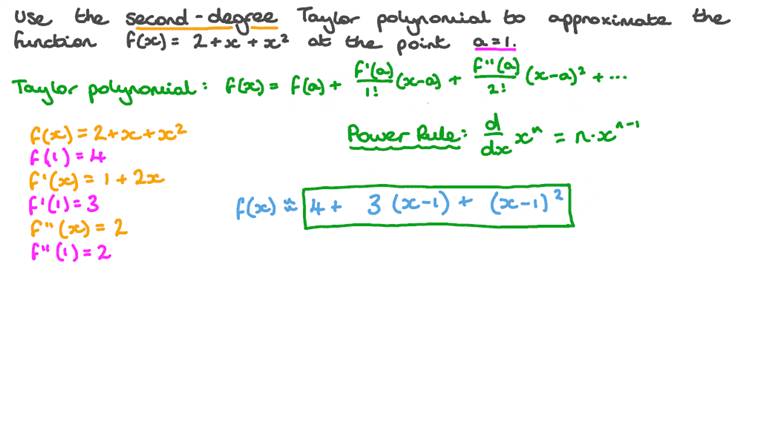 Use the second-degree Taylor polynomial to approximate the
function f(x) = 2 + x + x² at the point a=1.
Taylor polynomial: f(x) = f(a) + f'(a)/1! (x-a) + f''(a)/2! (x-a)² + ...
f(x) = 2 + x + x²
f(1) = 4
f'(x) = 1 + 2x
f'(1) = 3
f''(x) = 2
f''(1) = 2
Power Rule: d/dx xⁿ = n·xⁿ⁻¹
f(x) ≈ 4 + 3 (x-1) + (x-1)²